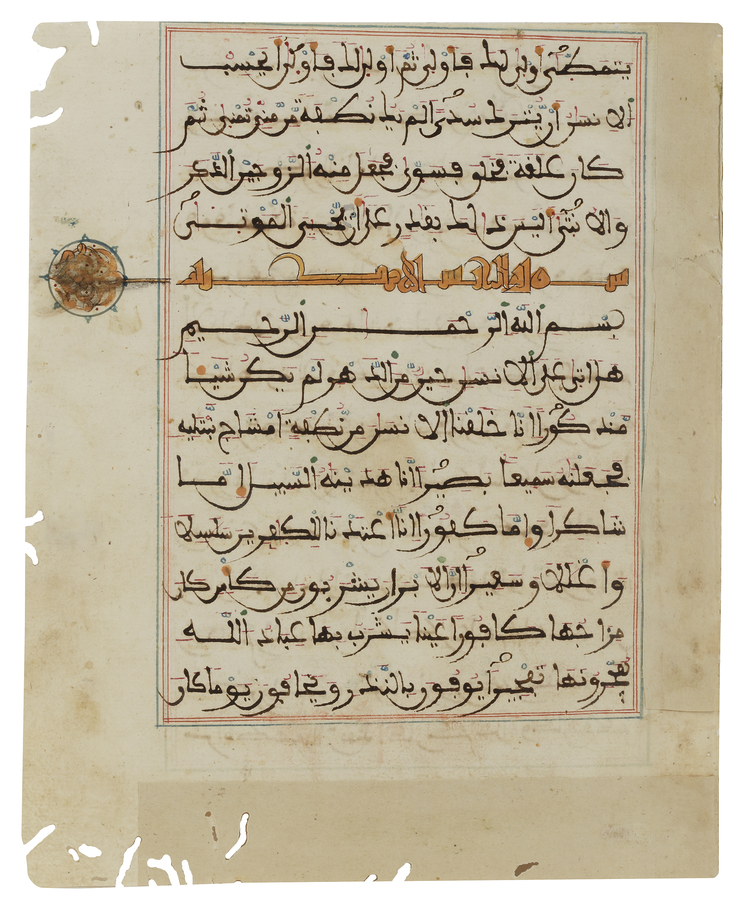 يتمطى اولى لك فاولى ثم اولى لك فاولى ايحسب
الانسن ان يترك سدى الم يك نطفة من مني تمنى ثم
كان علقة فخلق فسوى فجعل منه الزوجين الذكر
والانثى اليس ذلك بقدر على ان يحيي الموتى
سورة
بسم الله الرحمن الرحيم
هل اتى على الانسن حين من الدهر لم يكن شيا
مذكورا انا خلقنا الانسن من نطفة امشاج نبتليه
فجعلنه سميعا بصيرا انا هدينه السبيل اما
شاكرا واما كفورا انا اعتدنا للكفرين سلسلا
واغللا وسعيرا ان الابرار يشربون من كاس كان
مزاجها كافورا عينا يشرب بها عباد الله
يفجرونها تفجيرا يوفون بالنذر ويخافون يوما كان